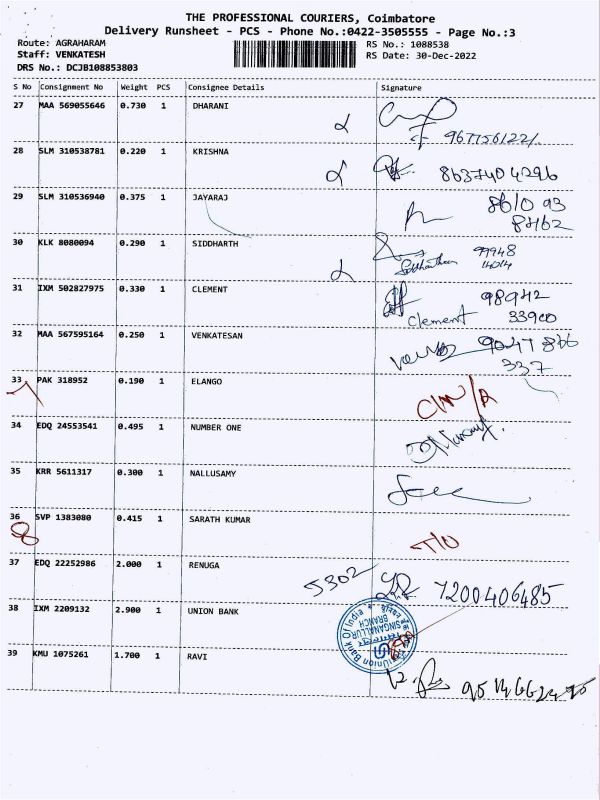 THE PROFESSIONAL COURIERS, Coimbatore
Delivery Runsheet - PCS - Phone No.:0422-3505555 - Page No.:3
Route: AGRAHARAM RS No.: 1088538
Staff: VENKATESH RS Date: 30-Dec-2022
DRS No.: DCJB108853803
S No Consignment No Weight PCS Consignee Details Signature
27 MAA 569055646 0.730 1 DHARANI
28 SLM 310538781 0.220 1 KRISHNA 8637404296
29 SLM 310536940 0.375 1 JAYARAJ 861093
8462
30 KLK 8080094 0.290 1 SIDDHARTH 99948
31 IXM 502827975 0.330 1 CLEMENT 98942
Clement 33900
32 MAA 567595164 0.250 1 VENKATESAN 9047 866
337
33 PAK 318952 0.190 1 ELANGO
34 EDQ 24553541 0.495 1 NUMBER ONE
35 KRR 5611317 0.300 1 NALLUSAMY
36 SVP 1383080 0.415 1 SARATH KUMAR
37 EDQ 22252986 2.000 1 RENUGA 5302 7200406485
38 IXM 2209132 2.900 1 UNION BANK
Union Bank Of India
SINGANALLUR
BRANCH
39 KMU 1075261 1.700 1 RAVI